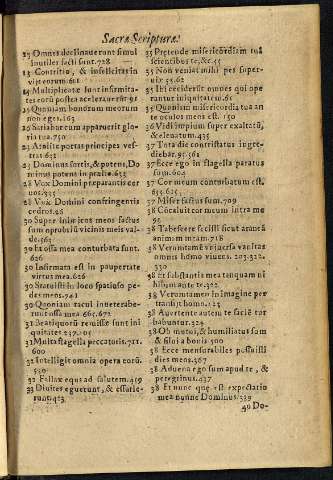 Sacræ Scripturæ.
13 Omnes declinauerunt simul
inutiles facti sunt. 728
13 Contritio, & infelicitas in
vijs eorum. 611
14 Multiplicatæ sunt infirmita-
tes eorũ postea accelerauerũt 91
15 Quoniam bonorum meorum
non eges. 163
16 Satiabor cum apparuerit glo-
ria tua. 750
23 Attollite portas principes ves-
tras
23 Dominus fortis, & potens, Do
minus potens in prælio. 633
28 Vox Domini præparantis cer
uos. 335
28 Vox Domini confringentis
cedros. 26
30 Super inimicos meos factus
sum oprobriũ vicinis meis val-
de. 363
30 Et ossa mea conturbata sunt.
626
30 Infirmata est in paupertate
virtus mea. 626
30 Statuisti in loco spatioso pe-
des meos. 741
30 Quoniam tacui inuetera­be-
runt ossa mea 665. 672
31 Beati quorũ remissæ sunt ini
quitates
31 Multa flagella peccatoris. 711.
600
32 Intelligit omnia opera eorũ.
550
32 Fallax equs ad salutem. 419
33 Diuites eguerunt, & esurie-
runt. 423
35 Prætende misericordiam tuã
scientibus te, &c. 45
35 Non veniat mihi pes super-
uiæ. 55. 62
35 Ibi ceciderũt omnes qui ope-
rantur iniquitatem. 61
35 Quoniam misericordia tua an
te oculos meos est. 150
36 Vidi impium super exaltatũ,
& eleuatum. 435
37 Tota die contristatus ingre-
diebar. 95. 561
37 Ecce ego in flagella paratus
sum. 604
37 Cor meum conturbatum est.
635. 625.
37 Miser factus sum. 709
38 Cõcaluit cor meum intra me
95
38 Tabescere fecisti sicut araneã
animam meam. 718
38 Verũtamẽ vniuersa vanitas
omnis homo viuens. 203. 322.
330
38 Et substantia mea tanquam ni
hilum ante te. 322
38 Verũtamen in imagine per
transijt homo. 325
38 Auertente autem te faciẽ tur
babuntur. 324
38 Obmutui, & humiliatus sum
& silui a bonis 500
38 Ecce mensurabiles possuisti
dies meos. 567
38 Aduena ego sum apud te, &
peregrinus. 437
38 Et nunc quæ est expectatio
mea nunne Dominus. 539
40 Do-